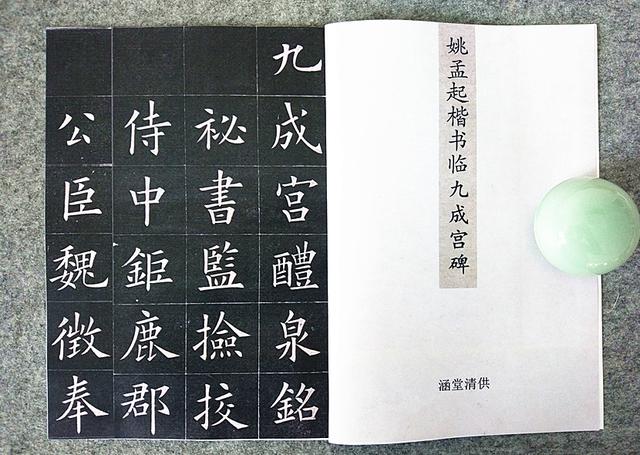 姚孟起楷书临九成宫碑
涵堂清供
九成宫醴泉銘
祕書監撿挍
侍中鉅鹿郡
公臣魏徵奉